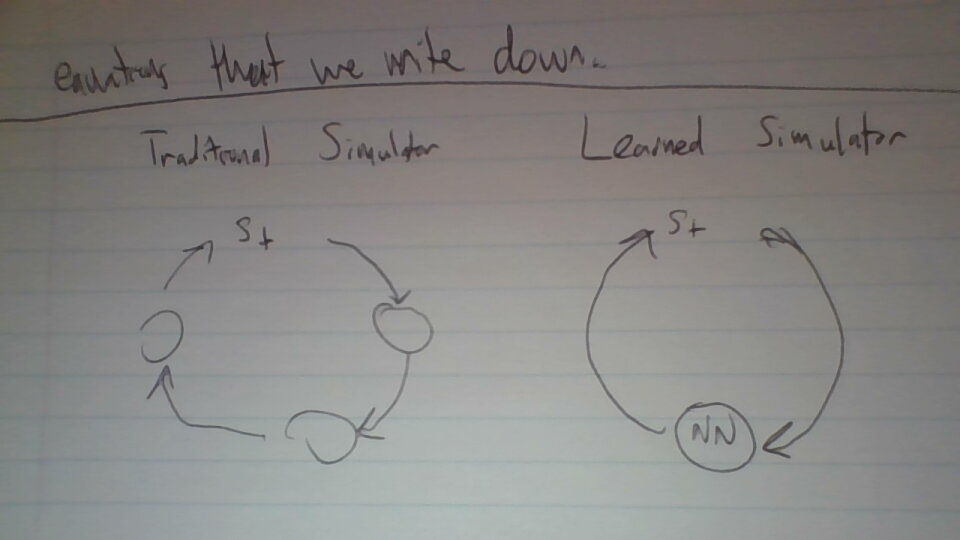 equations that we write down.
Traditional Simulator Learned Simulator
St St
NN